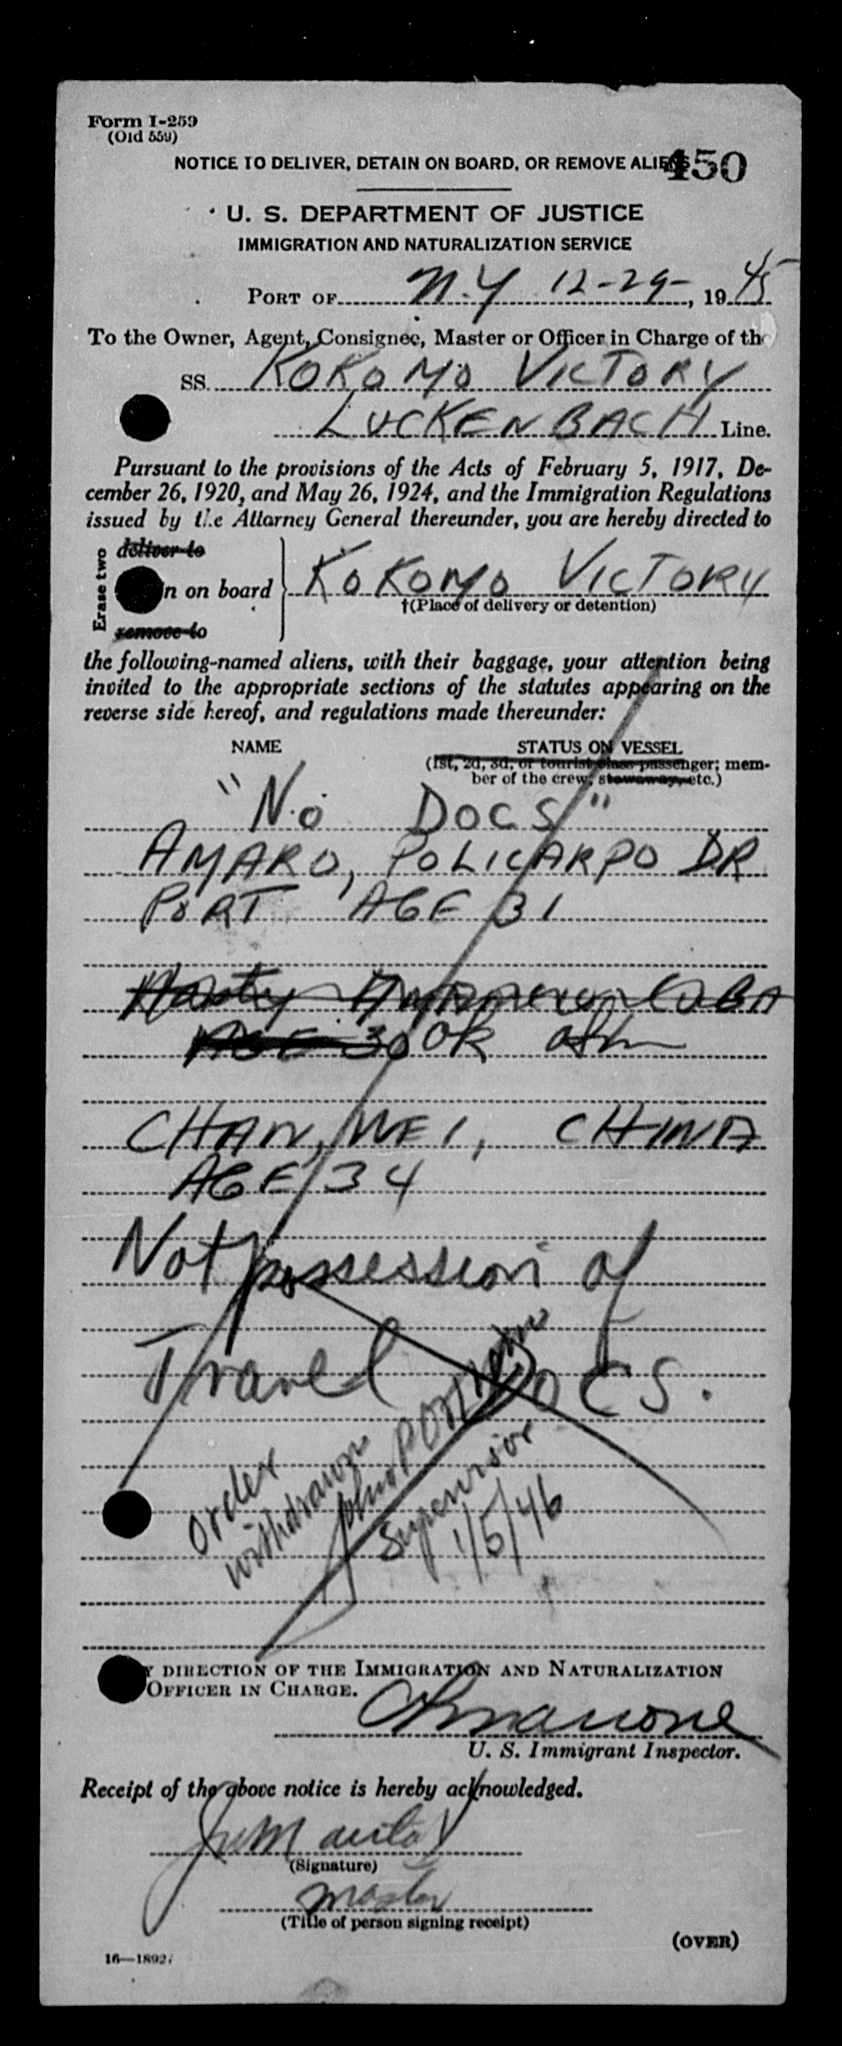 Form I-259
(Old 559)
NOTICE TO DELIVER, DETAIN ON BOARD, OR REMOVE ALIENS
450
U. S. DEPARTMENT OF JUSTICE
IMMIGRATION AND NATURALIZATION SERVICE
PORT OF N.Y 12-29-, 1945
To the Owner, Agent, Consignee, Master or Officer in Charge of the
SS. KOKOMO VICTORY
LUCKENBACH Line.
Pursuant to the provisions of the Acts of February 5, 1917, De-
cember 26, 1920, and May 26, 1924, and the Immigration Regulations
issued by the Attorney General thereunder, you are hereby directed to
Erase two
deliver to
n on board
remove to
KOKOMO VICTORY
†(Place of delivery or detention)
the following-named aliens, with their baggage, your attention being
invited to the appropriate sections of the statutes appearing on the
reverse side hereof, and regulations made thereunder:
NAME STATUS ON VESSEL
(1st, 2d, 3d, or tourist class passenger; mem-
ber of the crew, stowaway, etc.)
"NO DOCS"
AMARO, POLICARPO DR
PORT AGE 31
CUBA
AGE 30 OK
CHAN, WEI, CHINA
AGE 34
Not possession of
Travel DOCS.
Order
withdrawn
John P
Supervisor
1/5/46
Y DIRECTION OF THE IMMIGRATION AND NATURALIZATION
OFFICER IN CHARGE.
U. S. Immigrant Inspector.
Receipt of the above notice is hereby acknowledged.
(Signature)
Master
(Title of person signing receipt)
(OVER)
16—1892